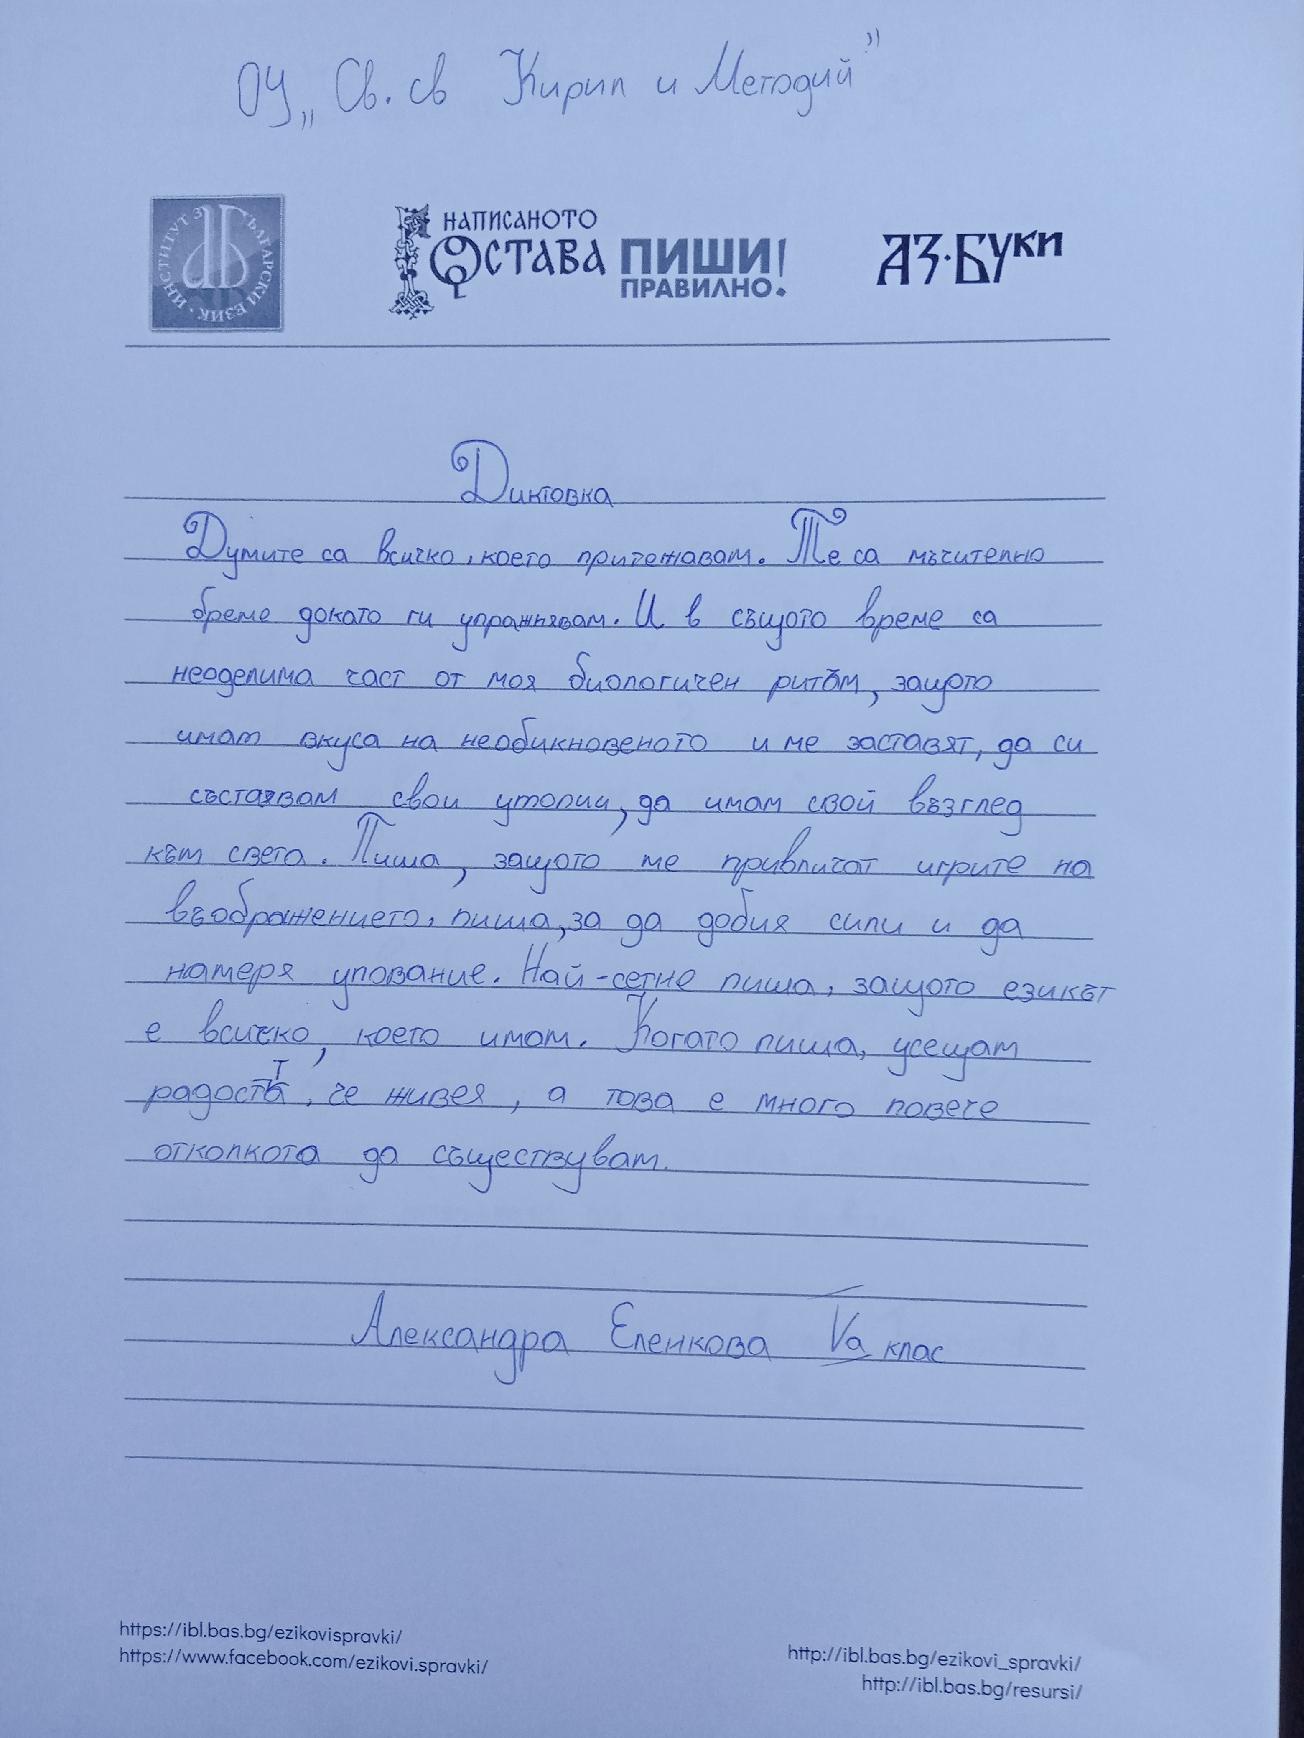 ОУ „Св. св Кирил и Методий”
ИНСТИТУТ ЗА БЪЛГАРСКИ ЕЗИК
НАПИСАНОТО
ОСТАВА
ПИШИ!
ПРАВИЛНО.
АЗ·БУКИ
Диктовка
Думите са всичко, което притежавам. Те са мъчително
бреме докато ги упражнявам. И в същото време са
неоделима част от моя биологичен ритъм, защото
имат вкуса на необикновеното и ме заставят, да си
съставам свои утопии, да имам свой възглед
към света. Пиша, защото ме привличат игрите на
въображението, пиша, за да добия сили и да
намеря упование. Най-сетне пиша, защото езикът
е всичко, което имам. Когато пиша, усещам
радостта, че живея, а това е много повече
отколкота да съществувам.
Александра Еленкова Va клас
https://ibl.bas.bg/ezikovispravki/
https://www.facebook.com/ezikovi.spravki/
http://ibl.bas.bg/ezikovi_spravki/
http://ibl.bas.bg/resursi/